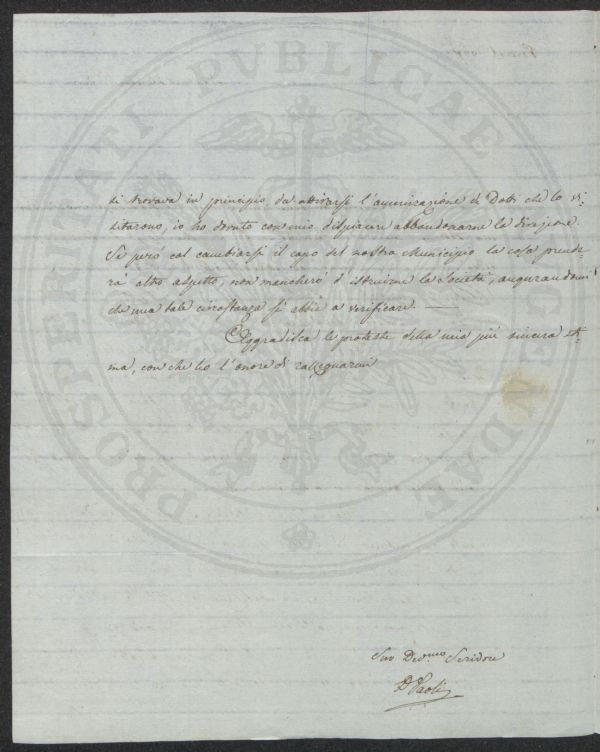 si trovava in principio da attivarsi l'ammirazione di Dotti che lo vi-
sitarono, io ho dovuto con mio dispiacere abbandonarne la direzione.
Se però col cambiarsi il capo del nostro Municipio la cosa prende-
rà altro aspetto, non mancherò d'istruirne la Società, augurandomi
che una tale circostanza si abbia a verificare. —
Aggradisca le proteste della mia più sincera sti-
ma, con che ho l'onore di rassegnarmi
Suo Dev.mo Servidore
D Paoli
PROSPERITATI PUBLICAE AUGENDAE